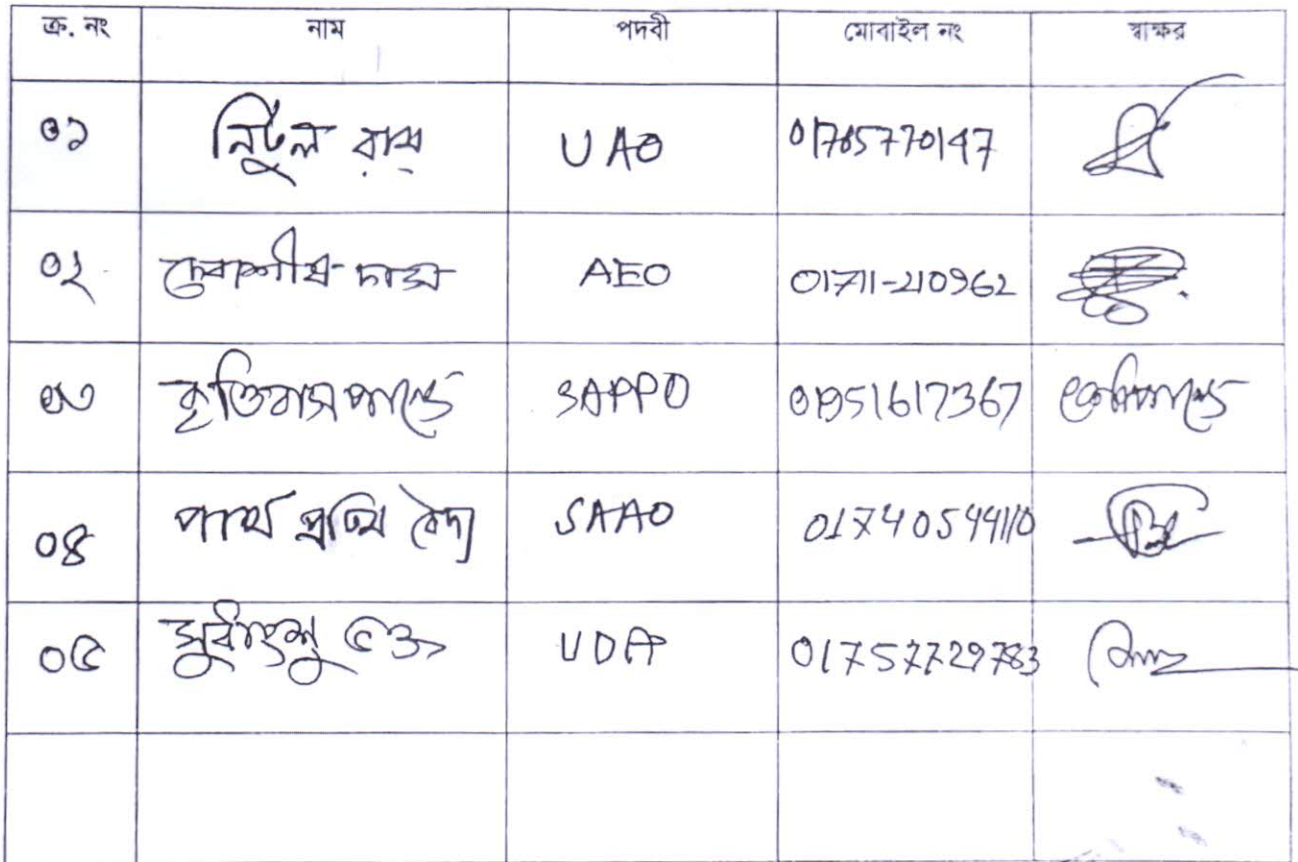 ক্র. নং নাম পদবী মোবাইল নং স্বাক্ষর
০১ নিটুল রায় UAO 01705770147
০২ দেবাশীষ দাস AEO 01711-210962
০৩ কৃত্তিবাস পান্ডে SAPPO 01951617367
০৪ পার্থ প্রতিম বৈদ্য SAAO 01740544110
০৫ সুধাংশু UDA 01757729783